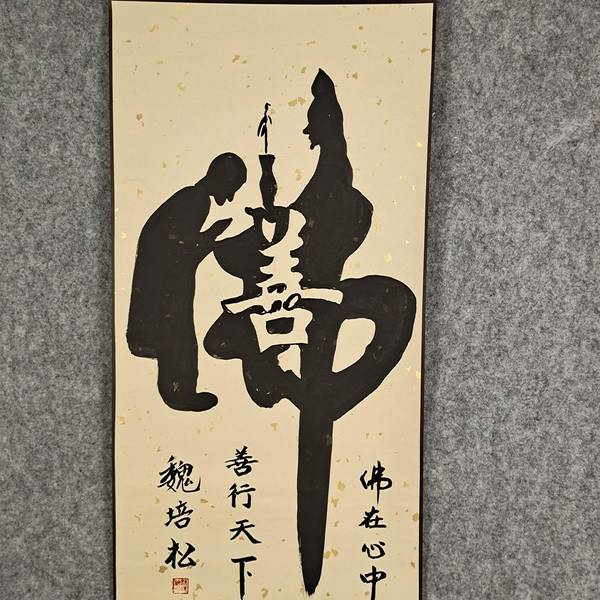 佛
善
佛在心中
善行天下
魏培松